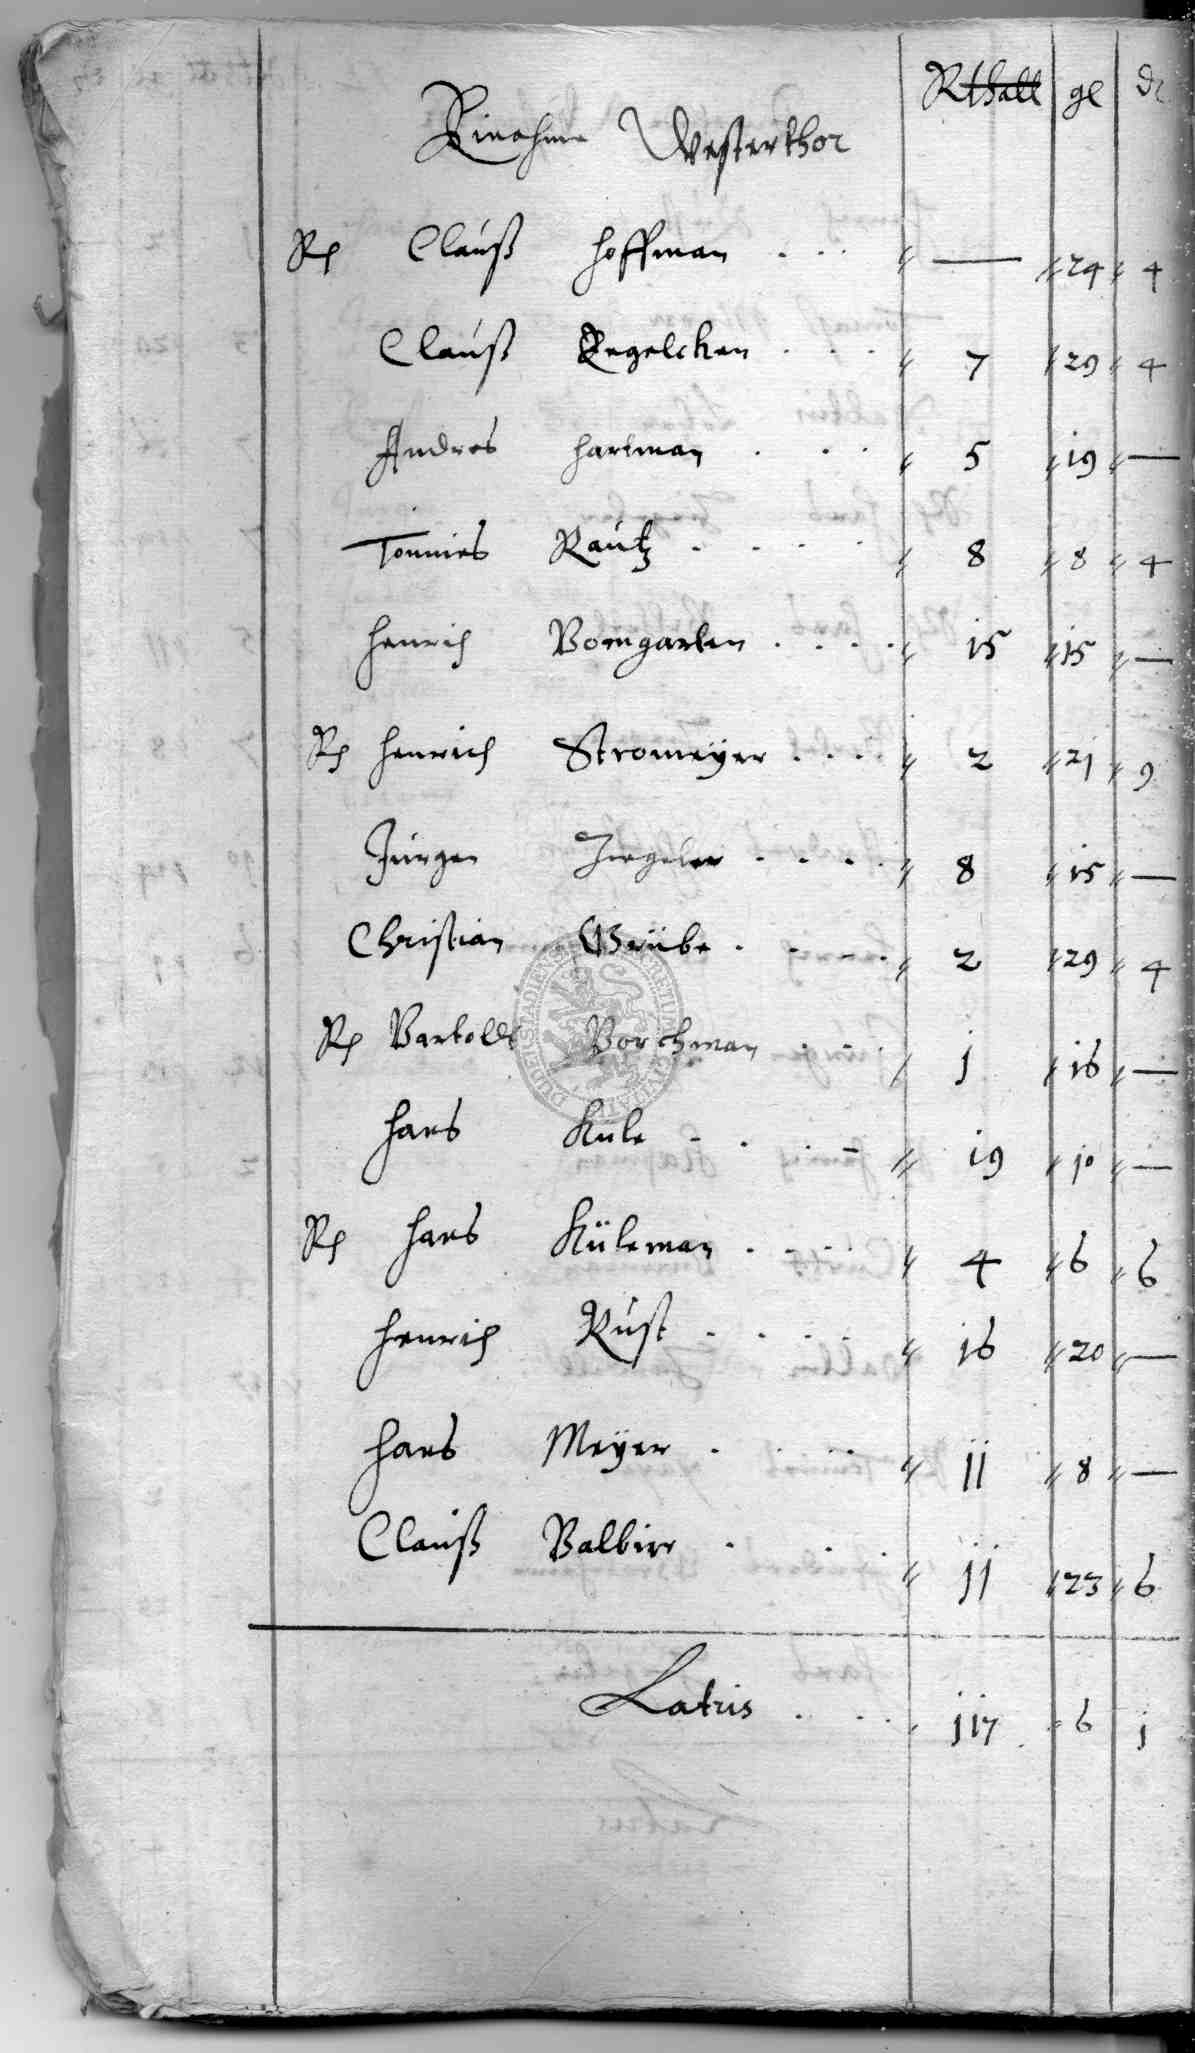 Rthall gl d
Einahme Westerthor
Rp Clauß Hoffman . . . — 24 4
Clauß Engelcken . . . 7 29 4
Andres Hartman . . . 5 19 —
Tonnies Rautz . . . . 8 8 4
Henrich Bomgarten . . . . 15 15 —
Rp Henrich Stromeÿer . . . . 2 21 9
Jurgen Ziegeler . . . . 8 15 —
Christian Grübe . . . 2 29 4
Rp Bartoldt Borchman . . 1 16 —
Hans Kule . . . 19 10 —
Rp Hans Küleman . . . . 4 6 6
Henrich Rust . . . . 16 20 —
Hans Meÿer . . . . 11 8 —
Clauß Balbirr . . . 11 23 6
Latris . . . . 117 6 1